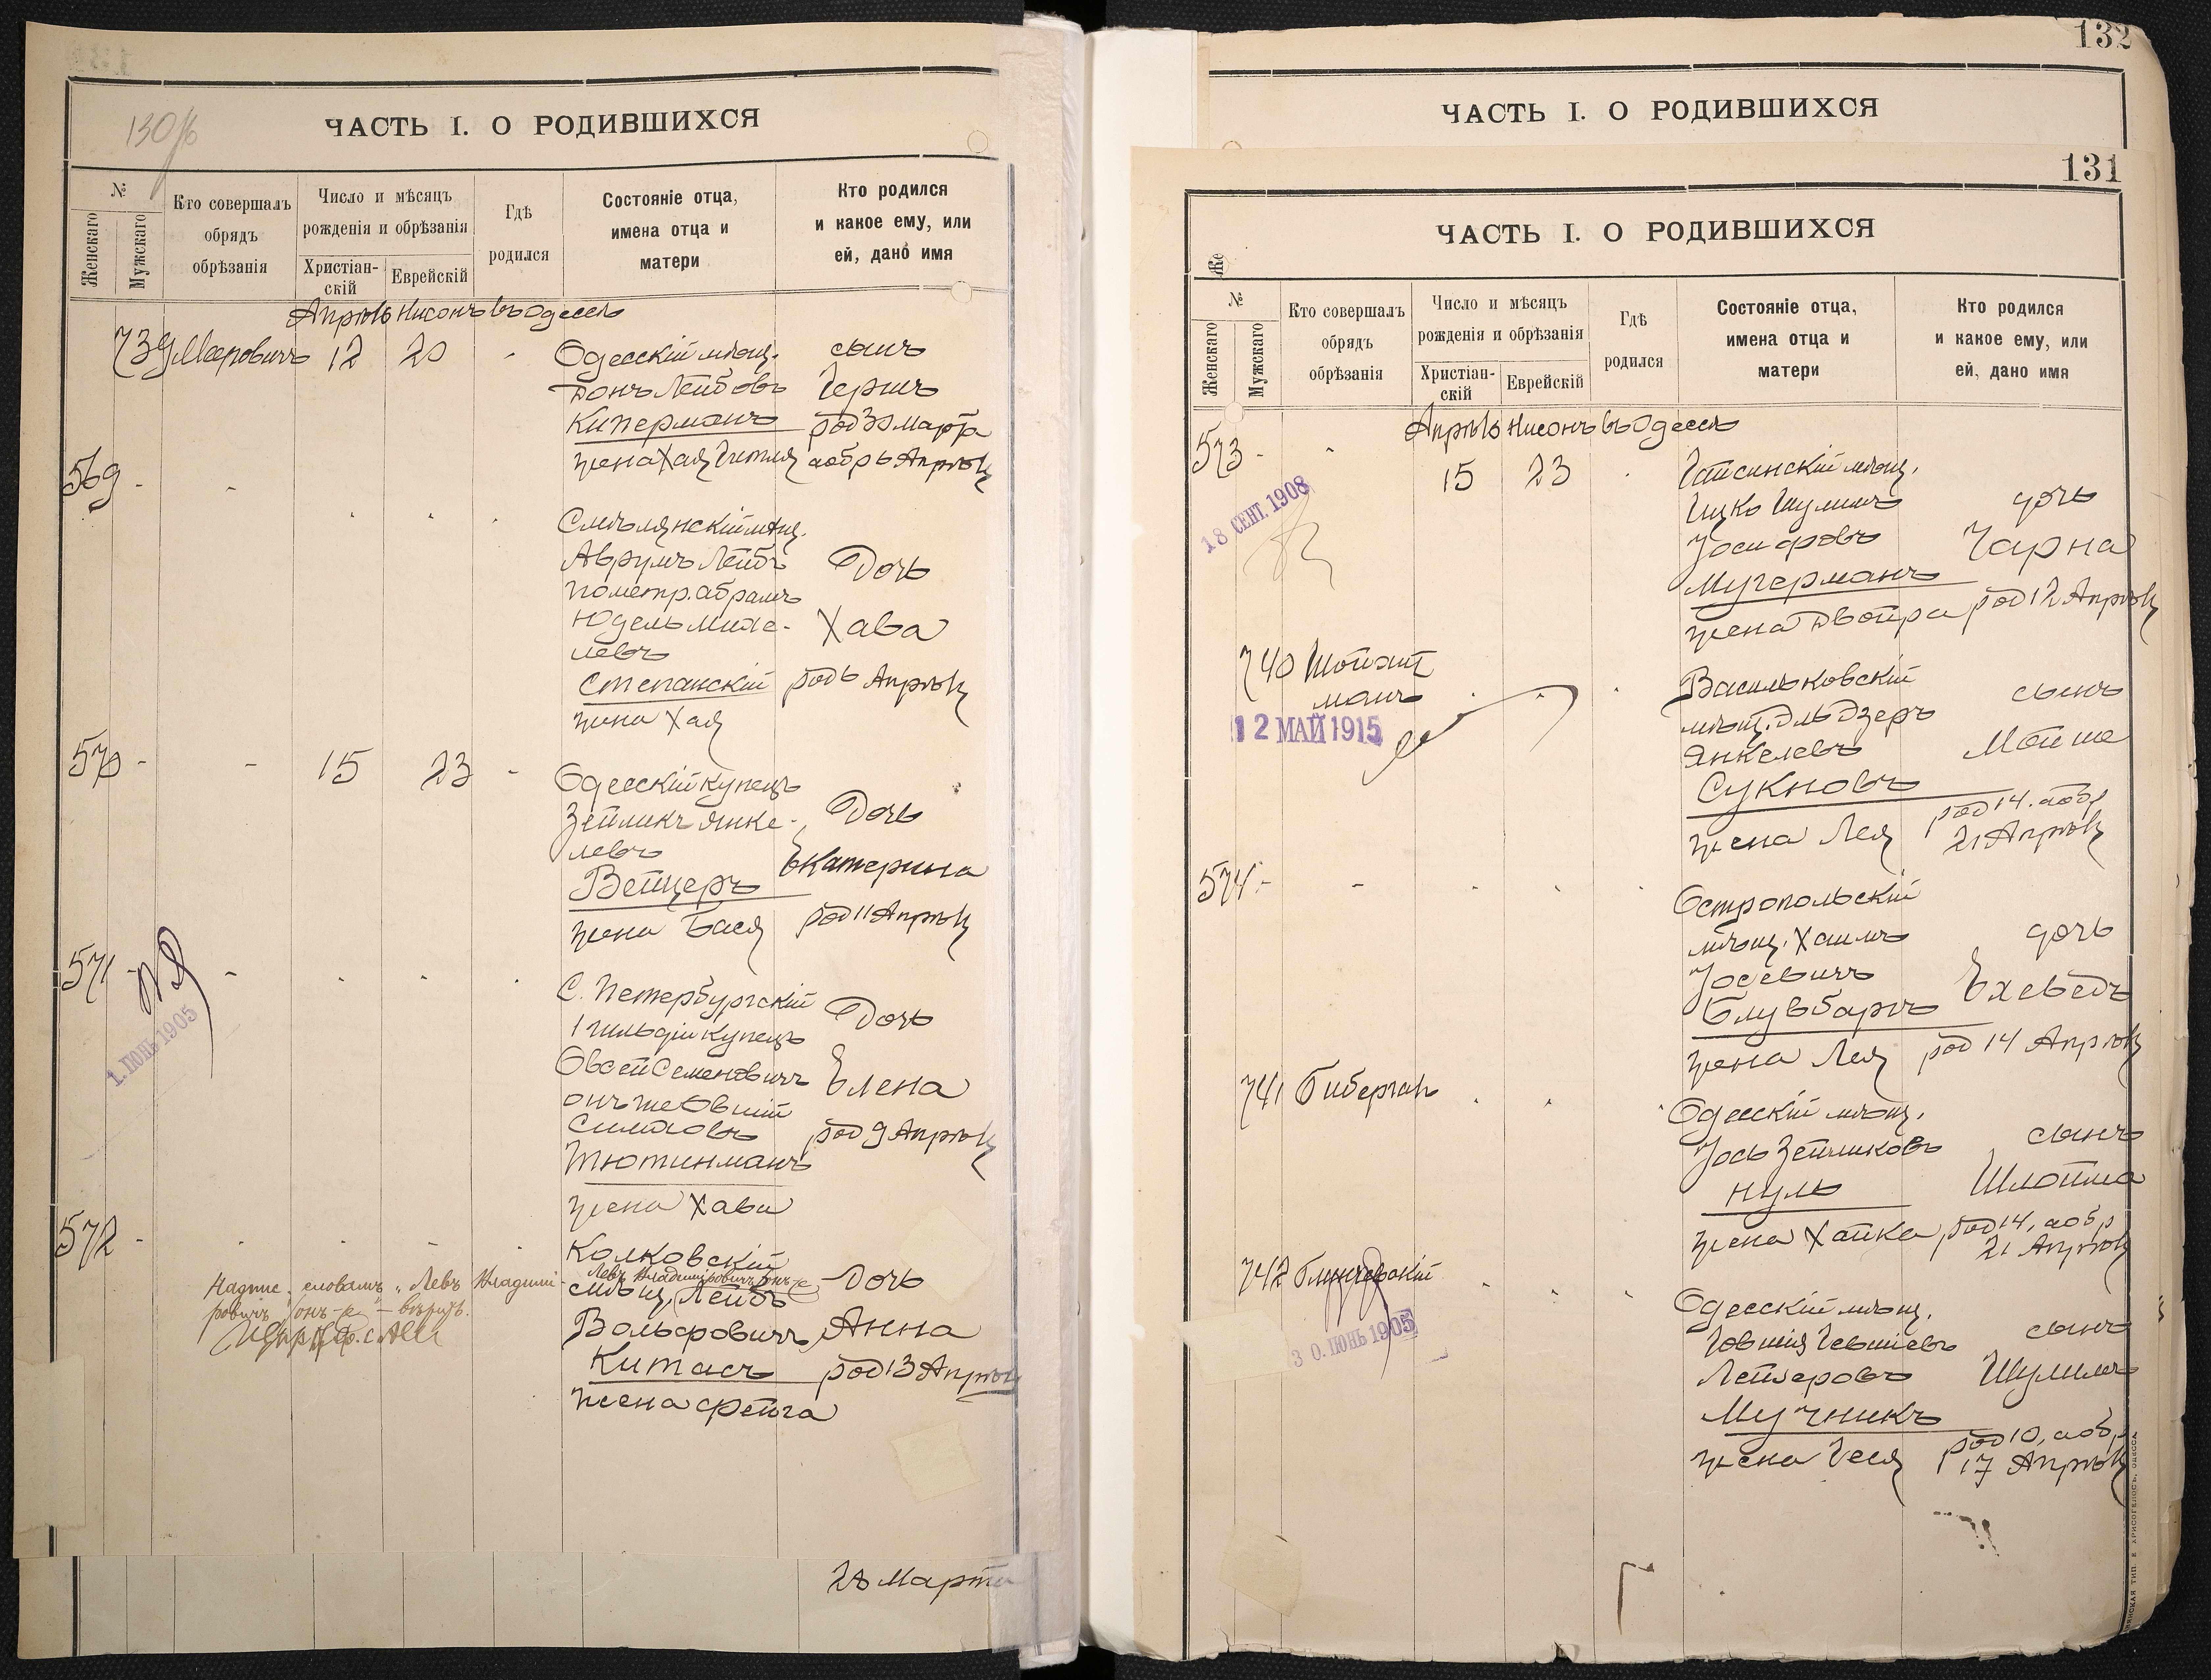 130/б
ЧАСТЬ I. О РОДИВШИХСЯ
№
Женскаго
Мужскаго
Кто совершалъ
обрядъ
обрѣзанія
Число и мѣсяцъ
рожденія и обрѣзанія
Христіан-
скій
Еврейскій
Гдѣ
родился
Состояніе отца,
имена отца и
матери
Кто родился
и какое ему, или
ей, дано имя
Апрѣль Нисонъ въ Одессѣ
739 Мееровичъ 12 20
Одесскій мѣщ.
Донъ Лейбовъ
Киперманъ
жена Хая Гитля
сынъ
Гершъ
род 30 Марта
а обр 6 Апрѣля
569 -
Смѣлянскій мѣщ.
Аврумъ Лейбъ
по метр. Абрамъ
Юдель Михе-
левъ
Степанскій
жена Хая
Дочь
Хава
род 6 Апрѣля
570 - - 15 23 -
Одесскій купецъ
Зейликъ Янке-
левъ
Вейцеръ
жена Бася
Дочь
Екатерина
род 11 Апрѣля
571 -
1. ІЮНЬ 1905
С. Петербургскій
1 гильдіи купецъ
Овсей Семеновичъ
онъ же Овшій
Симховъ
Тютинманъ
жена Хава
Дочь
Елена
род 9 Апрѣля
572 -
Надпис. словамъ „Левъ Владимі-
ровичъ онъ-же" - вѣрить.
Колковскій
Левъ Владиміровичъ онъ-же
мѣщ. Лейбъ
Вольфовичъ
Китасъ
жена Фейга
Дочь
Анна
род 13 Апрѣля
28 Марта
132
ЧАСТЬ I. О РОДИВШИХСЯ
131
ЧАСТЬ I. О РОДИВШИХСЯ
Же
№
Женскаго
Мужскаго
Кто совершалъ
обрядъ
обрѣзанія
Число и мѣсяцъ
рожденія и обрѣзанія
Христіан-
скій
Еврейскій
Гдѣ
родился
Состояніе отца,
имена отца и
матери
Кто родился
и какое ему, или
ей, дано имя
Апрѣль Нисонъ въ Одессѣ
573 - 15 23
18 СЕНТ. 1908
Гайсинскій мѣщ.
Ицко Шулимъ
Іосифовъ
Мучерманъ
жена Двойра
дочь
Чарна
род 12 Апрѣля
740 Шойхит
манъ
12 МАЙ 1915
Васильковскій
мѣщ. Эльдзеръ
Янкелевъ
Сукновъ
жена Лея
сынъ
Мойше
род 14. а обр
21 Апрѣля
574 - -
Остропольскій
мѣщ. Хаимъ
Іосевичъ
Блувбаргъ
жена Лея
дочь
Ехеведъ
род 14 Апрѣля
741 Бибергаль
Одесскій мѣщ.
Іось Зейликовъ
Нуль
жена Хайка
сынъ
Шлойма
род 14, а обр
21 Апрѣля
742
30. ІЮНЬ 1905
Одесскій мѣщ.
Говшія Гевшіевъ
Лейзеровъ
Мучникъ
жена Геся
сынъ
Шулимъ
род 10, а обр
17 Апрѣля